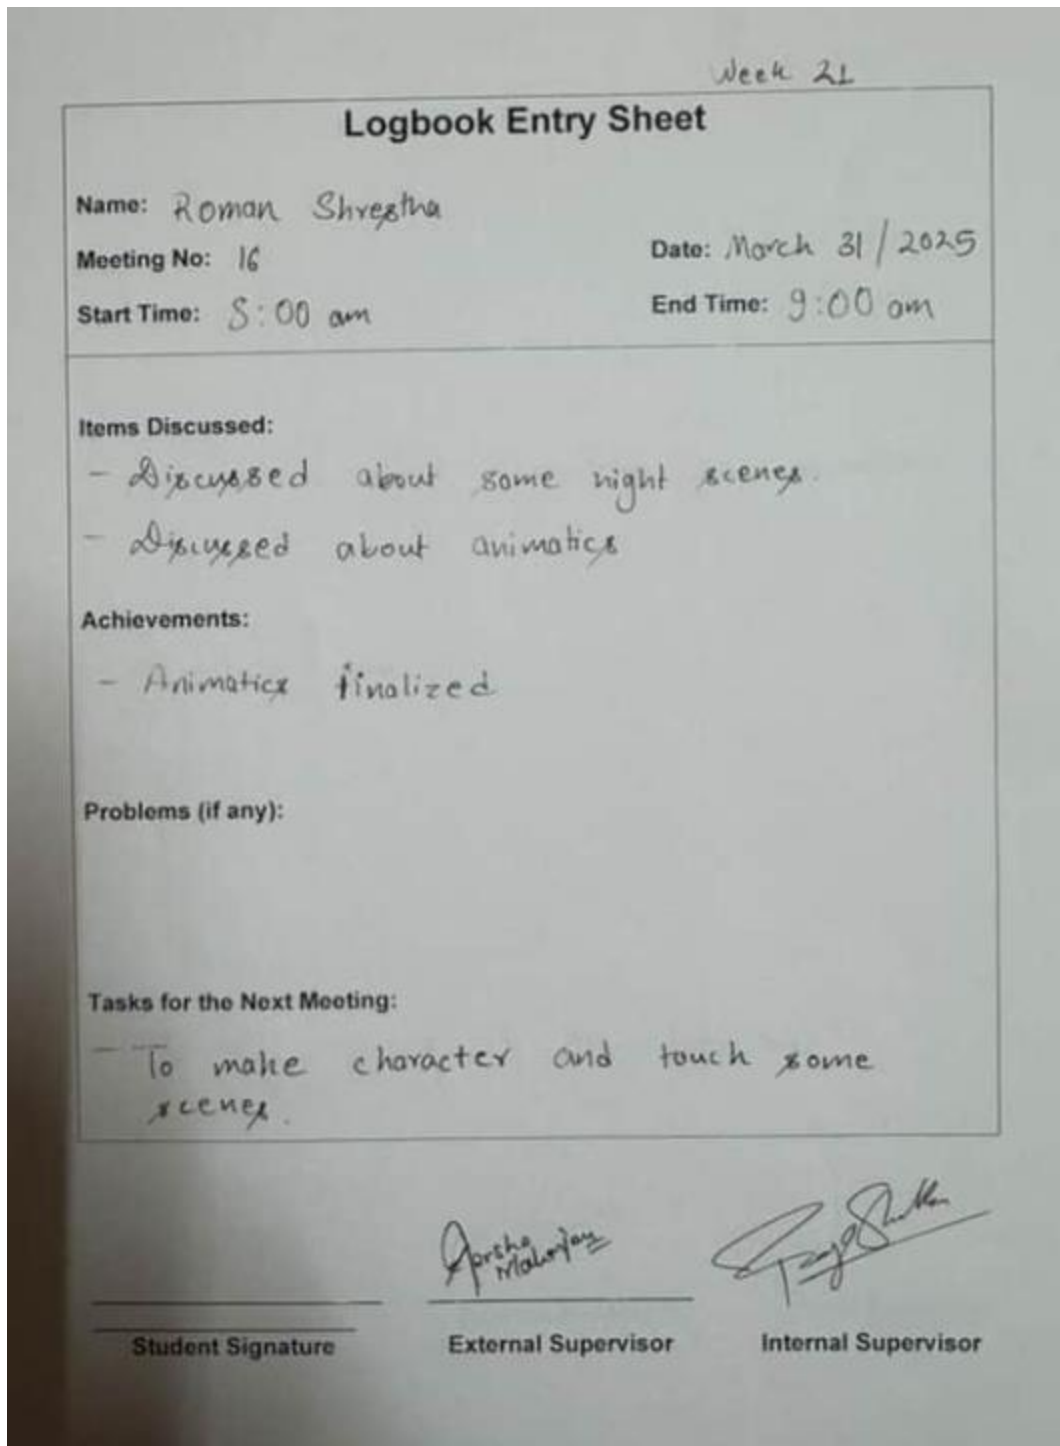 Week 21
Logbook Entry Sheet
Name: Roman Shrestha
Meeting No: 16
Date: March 31 / 2025
Start Time: 8:00 am
End Time: 9:00 am
Items Discussed:
- Discussed about some night scenes.
- Discussed about animatics
Achievements:
- Animatics finalized
Problems (if any):
Tasks for the Next Meeting:
- To make character and touch some
scenes.
Maharjan
Student Signature
External Supervisor
Internal Supervisor